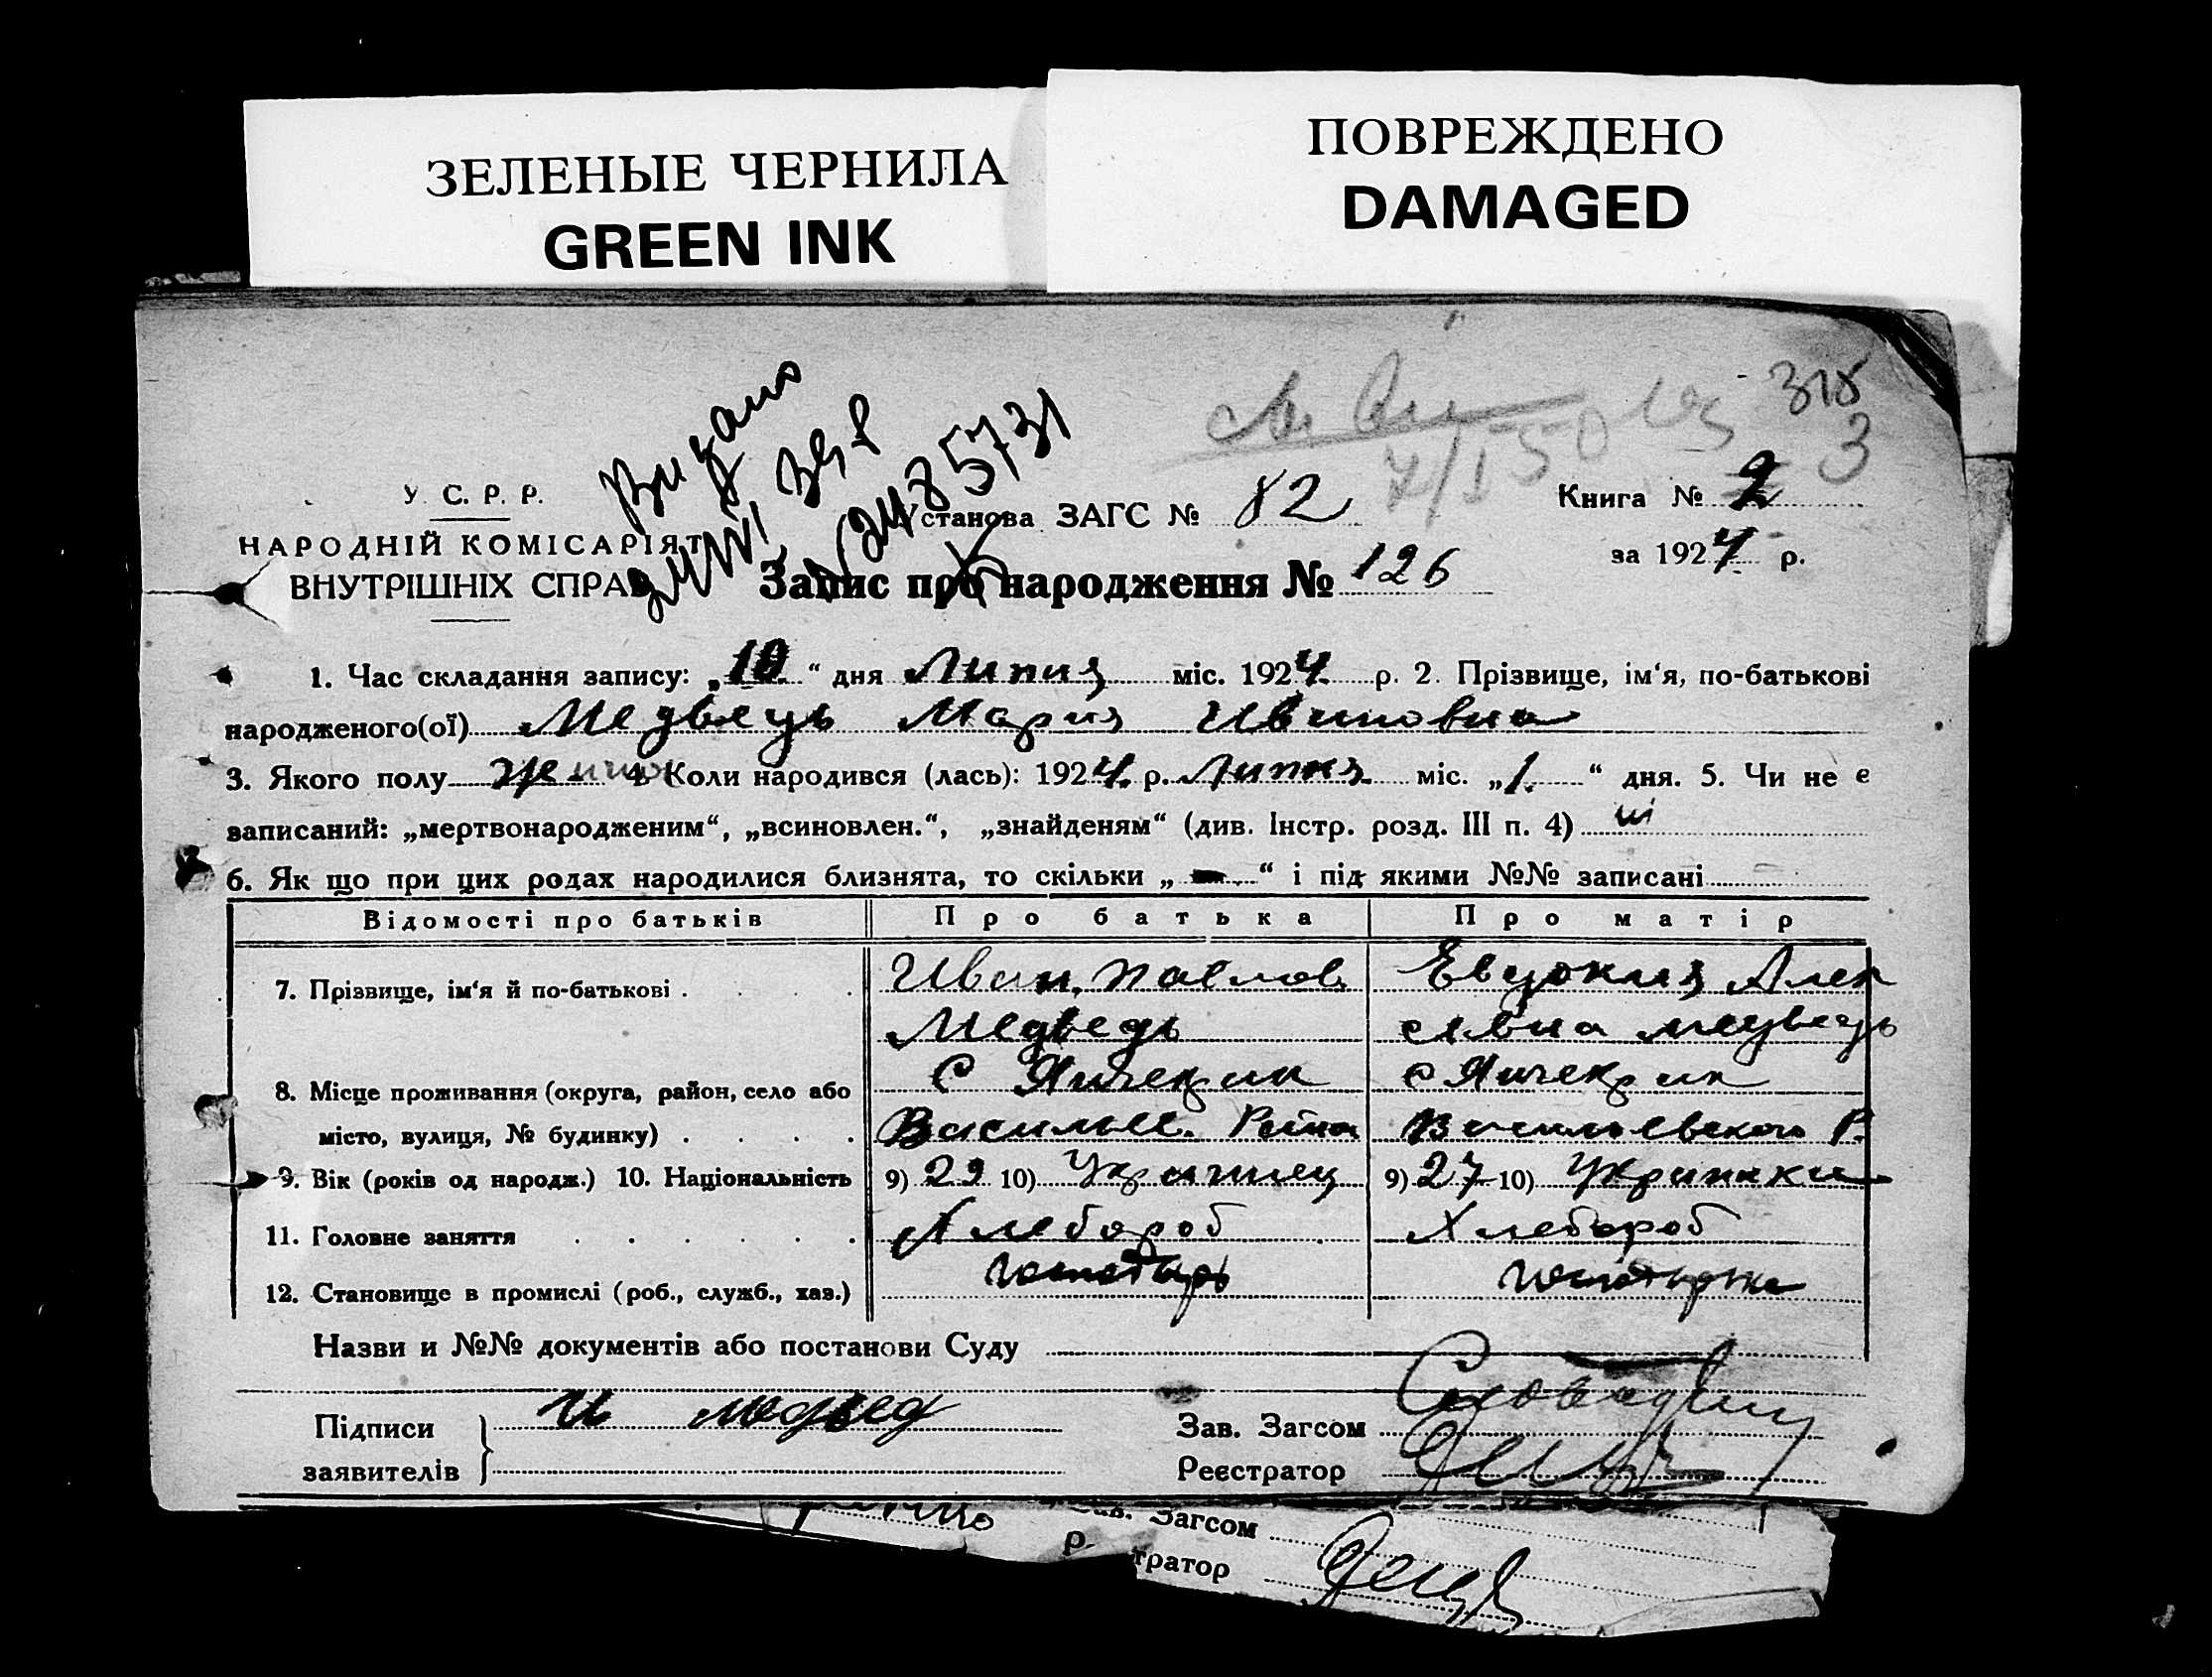 ЗЕЛЕНЫЕ ЧЕРНИЛА
GREEN INK
ПОВРЕЖДЕНО
DAMAGED
315
3
Видано
2485731
У. С. Р. Р.
НАРОДНІЙ КОМІСАРІЯТ
ВНУТРІШНІХ СПРАВ
Установа ЗАГС № 82
Книга № 2
за 1924 р.
Запис про народження № 126
1. Час складання запису: „10“ дня Липня міс. 1924 р. 2. Прізвище, ім‘я, по-батькові
народженого(ої) Медведь Мария Ивановна
3. Якого полу 4. Коли народився (лась): 1924 р. Липня міс. „1.“ дня. 5. Чи не є
записаний: „мертвонародженим“, „всиновлен.“, „знайденям“ (див. Інстр. розд. III п. 4) ні
6. Як що при цих родах народилися близнята, то скільки „ — “ і під якими №№ записані
Відомості про батьків Про батька Про матір
7. Прізвище, ім‘я й по-батькові . Иван Павлов Евдокия Алек
Медведь сеевна Медведь
8. Місце проживання (округа, район, село або с с
місто, вулиця, № будинку) . Васильев. Васильевского Р.
9. Вік (років од народж.) 10. Національність 9) 29 10) Украинец 9) 27 10) Украинка
11. Головне заняття Хлебороб Хлебороб
12. Становище в промислі (роб., служб., хаз.)
Назви и №№ документів або постанови Суду
Підписи И Медвед Зав. Загсом
заявителів Реєстратор
Зав. Загсом
тратор